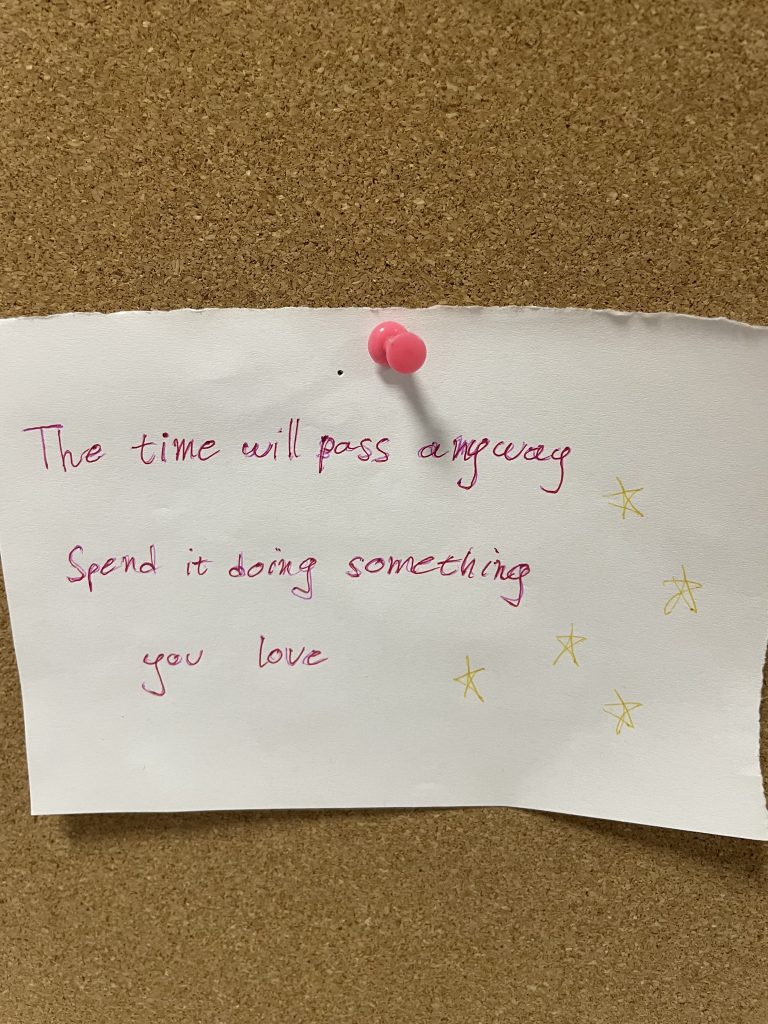 The time will pass anyway
Spend it doing something
you love